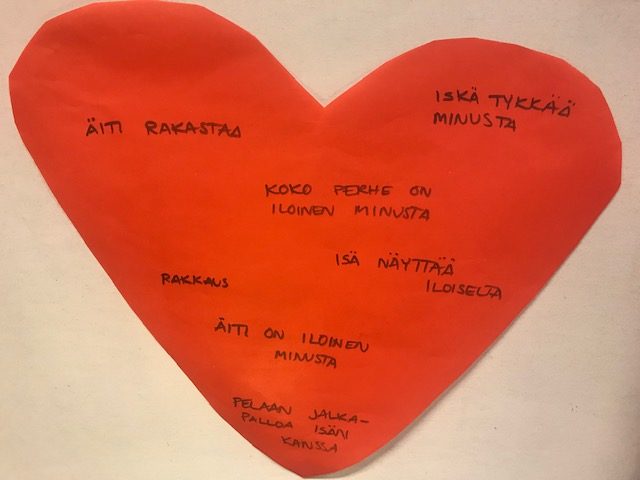 ÄITI RAKASTAA
ISKÄ TYKKÄÄ
MINUSTA
KOKO PERHE ON
ILOINEN MINUSTA
ISÄ NÄYTTÄÄ
ILOISELTA
RAKKAUS
ÄITI ON ILOINEN
MINUSTA
PELAAN JALKA-
PALLOA ISÄNI
KANSSA